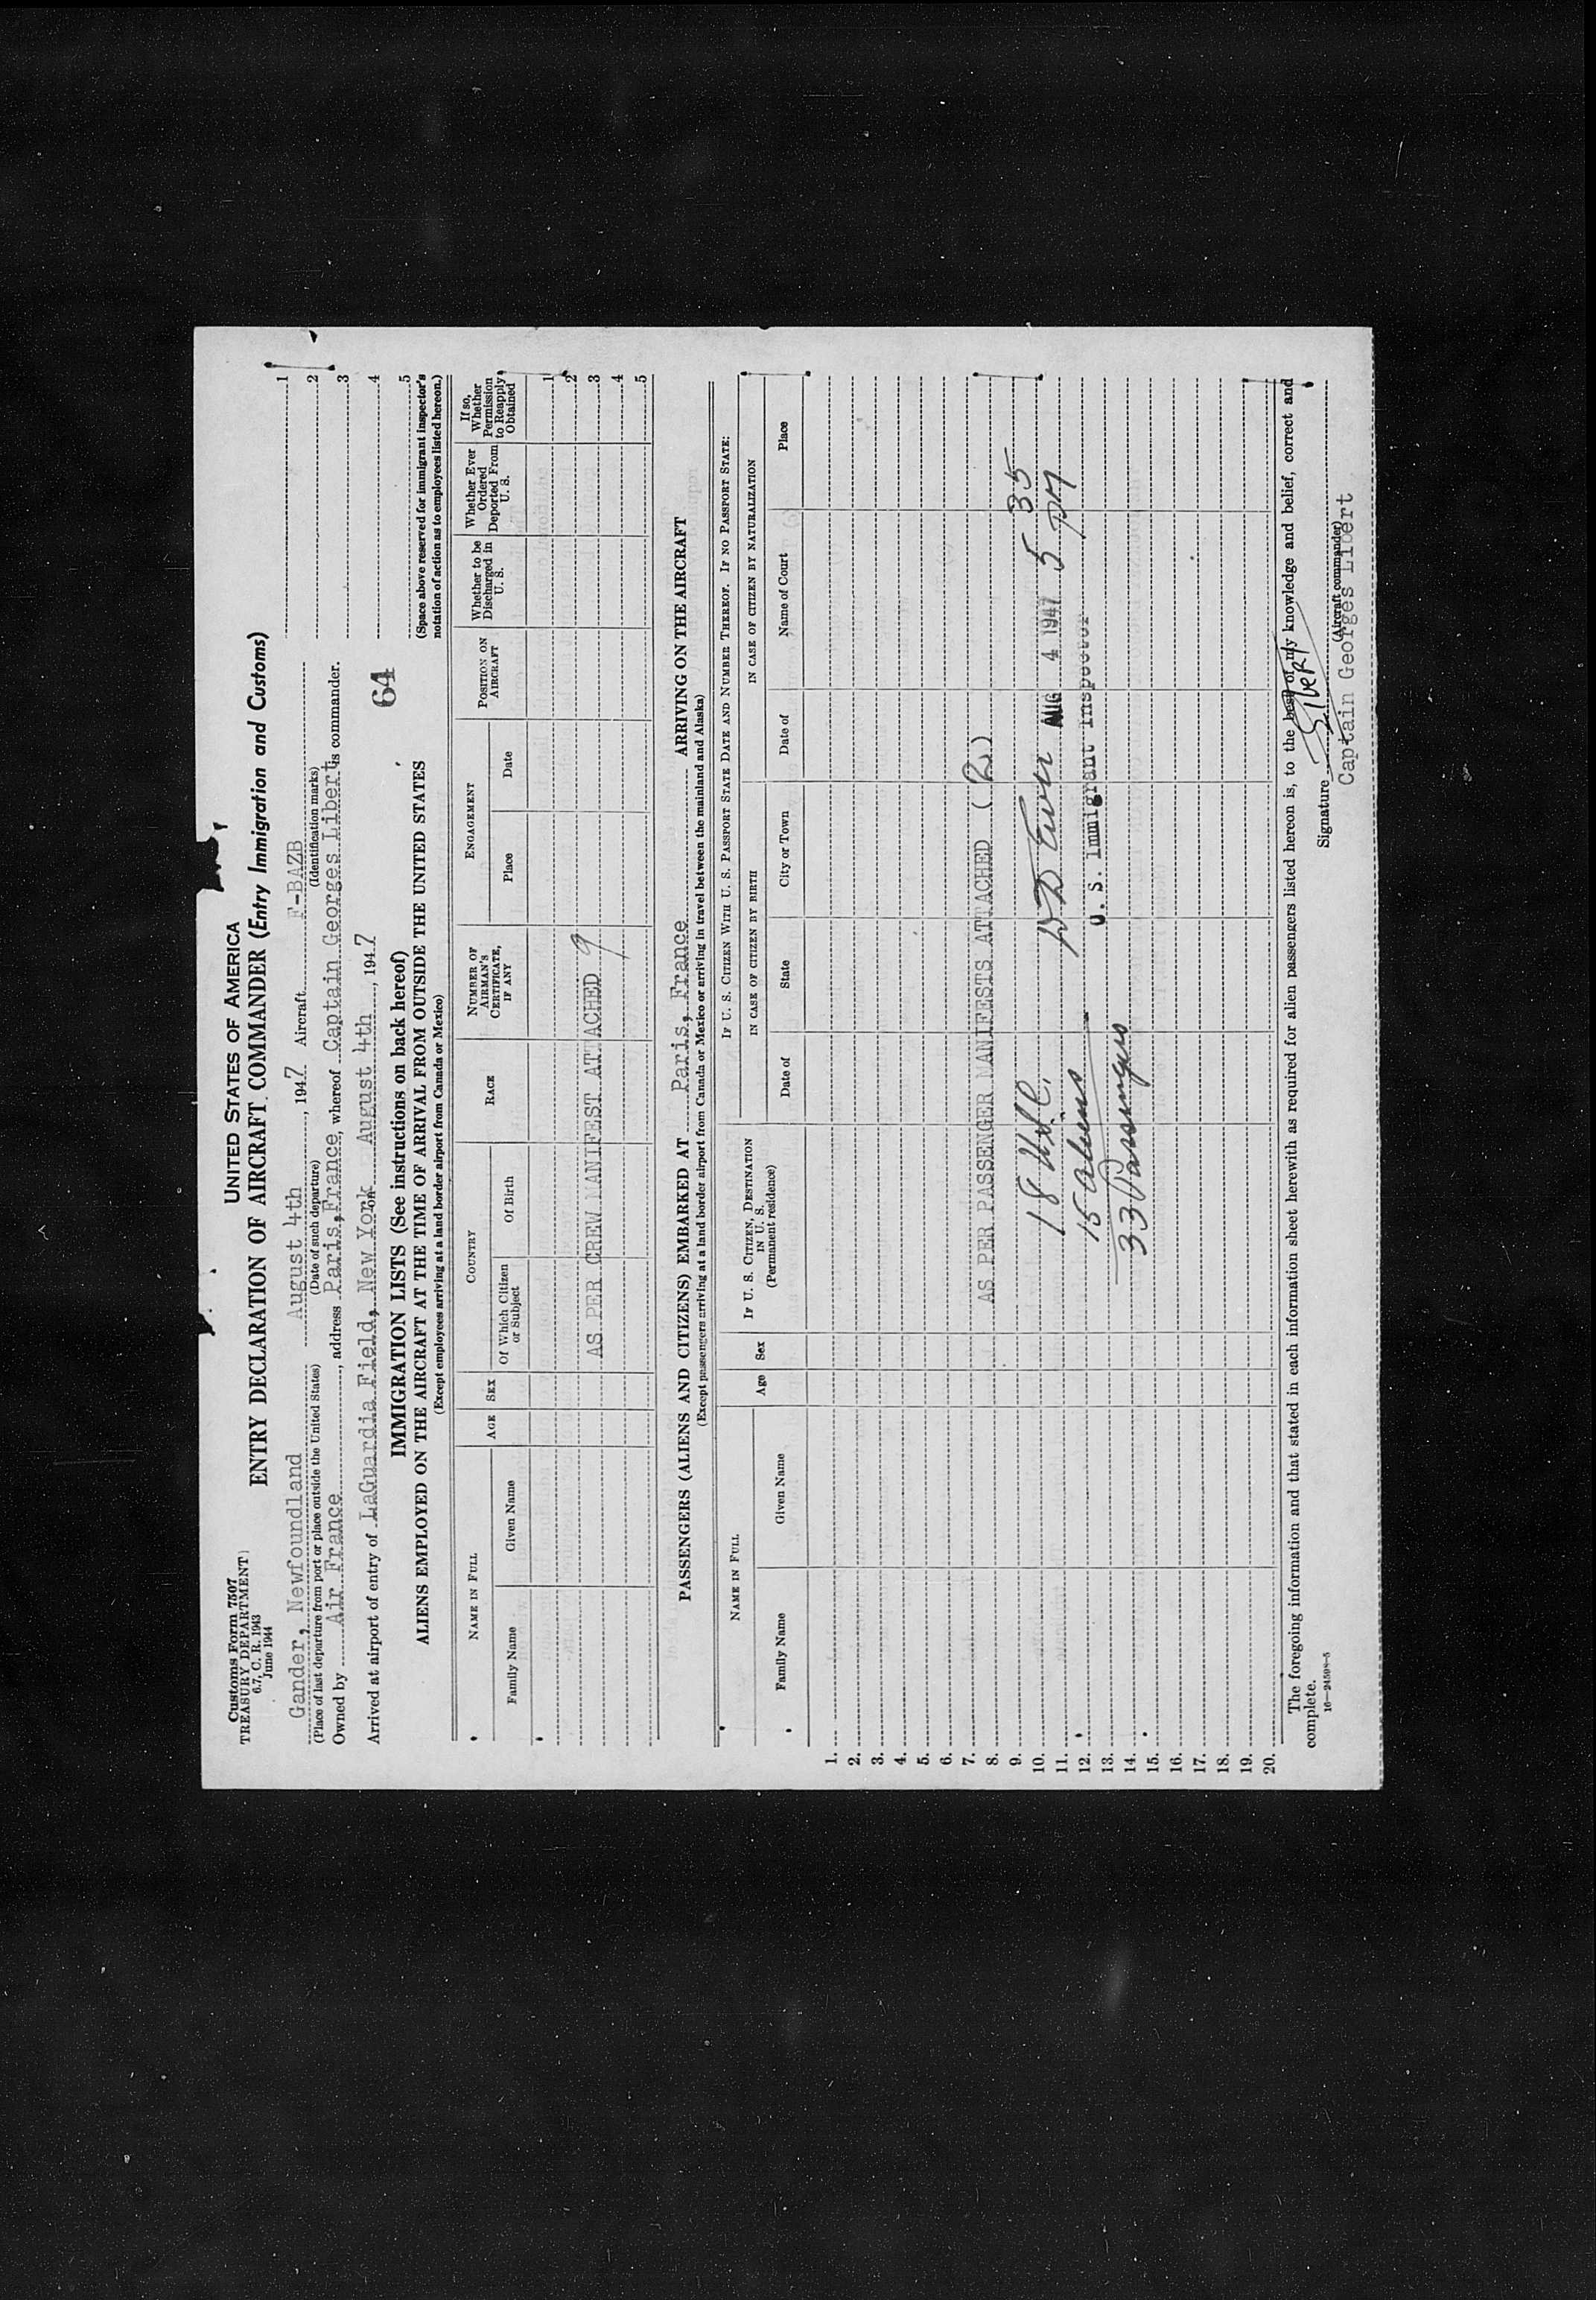 Customs Form 7507
TREASURY DEPARTMENT
6.7, C. R. 1943
June 1944
UNITED STATES OF AMERICA
ENTRY DECLARATION OF AIRCRAFT COMMANDER (Entry Immigration and Customs)
Gander, Newfoundland August 4th, 1947 Aircraft F-BAZB
(Place of last departure from port or place outside the United States) (Date of such departure) (Identification marks)
Owned by Air France, address Paris, France, whereof Captain Georges Libert is commander.
Arrived at airport of entry of LaGuardia Field, New York on August 4th, 1947
64
1
2
3
4
5
(Space above reserved for immigrant inspector's notation of action as to employees listed hereon.)
IMMIGRATION LISTS (See instructions on back hereof)
ALIENS EMPLOYED ON THE AIRCRAFT AT THE TIME OF ARRIVAL FROM OUTSIDE THE UNITED STATES
(Except employees arriving at a land border airport from Canada or Mexico)
NAME IN FULL
Family Name
Given Name
AGE
SEX
COUNTRY
Of Which Citizen or Subject
Of Birth
RACE
NUMBER OF AIRMAN'S CERTIFICATE, IF ANY
ENGAGEMENT
Place
Date
POSITION ON AIRCRAFT
Whether to be Discharged in U. S.
Whether Ever Ordered Deported From U. S.
If so, Whether Permission to Reapply Obtained
1
2
AS PER CREW MANIFEST ATTACHED 9
3
4
5
PASSENGERS (ALIENS AND CITIZENS) EMBARKED AT Paris, France ARRIVING ON THE AIRCRAFT
(Except passengers arriving at a land border airport from Canada or Mexico or arriving in travel between the mainland and Alaska)
NAME IN FULL
Family Name
Given Name
Age
Sex
IF U. S. CITIZEN, DESTINATION IN U. S. (Permanent residence)
IF U. S. CITIZEN WITH U. S. PASSPORT STATE DATE AND NUMBER THEREOF. IF NO PASSPORT STATE:
IN CASE OF CITIZEN BY BIRTH
Date of
State
City or Town
IN CASE OF CITIZEN BY NATURALIZATION
Date of
Name of Court
Place
1.
2.
3.
4.
5.
6.
7.
8. AS PER PASSENGER MANIFESTS ATTACHED (2)
9.
10. 18 35
11. AUG 4 1947 5 PM
12. 15 aliens U. S. Immigrant Inspector
13.
14. 33 Passengers
15.
16.
17.
18.
19.
20.
The foregoing information and that stated in each information sheet herewith as required for alien passengers listed hereon is, to the best of my knowledge and belief, correct and
complete.
Signature Libert
(Aircraft commander)
Captain Georges Libert
16—24598-5